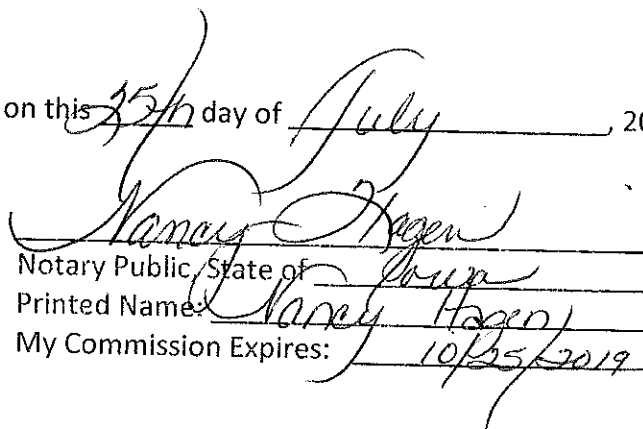 on this 25th day of July, 20
Nancy Hagen
Notary Public, State of Iowa
Printed Name: Nancy Hagen
My Commission Expires: 10/25/2019